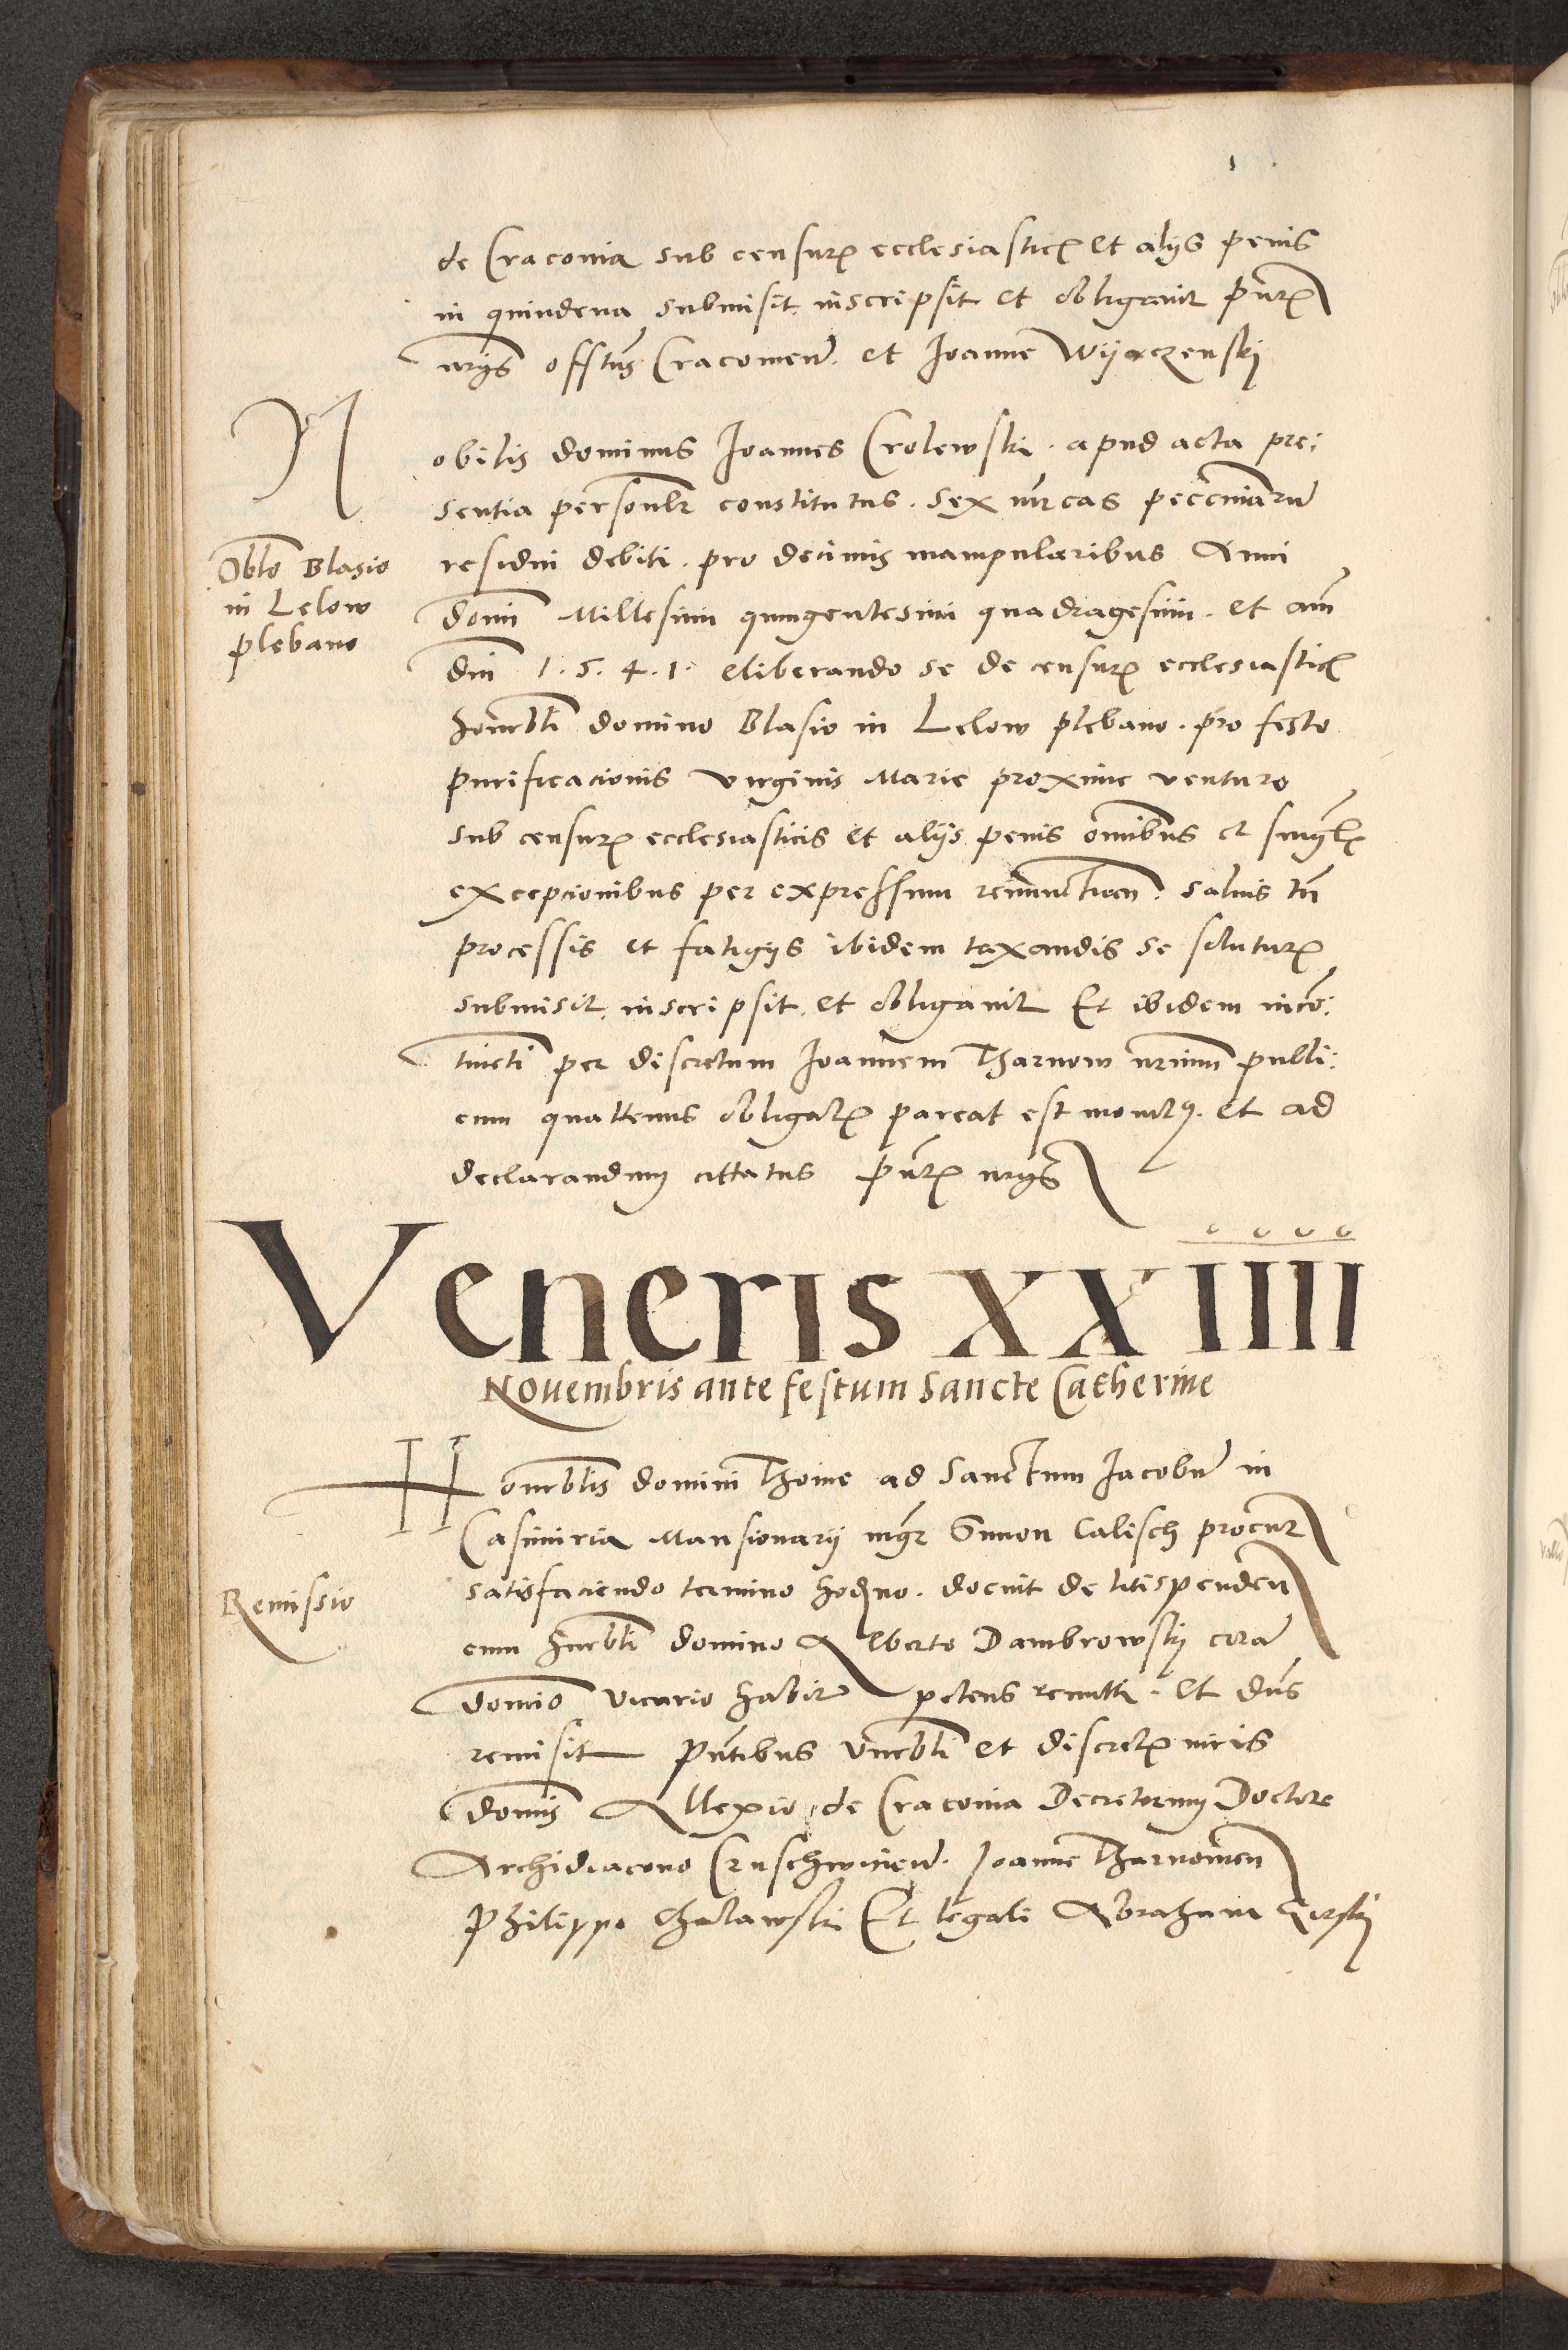 de Cracovia sub censuris ecclesiasticis et alijs penis
in quindena submisit inscripsit et obligavit pntibus
nrijs offitus Cracovien. et Joanne Wijączenskj
Nobilis dominus Joannes Crolewski. apud acta pre:
sentia personlr constitutus. sex mrcas peccuniarum
Oblo Blasio
in Lelow
plebano
residui debiti. pro decimis manipularibus Anni
domi Millesimi quingentesimi quadragesimi. et ani
dni 1.5.4.1. eliberando se de censuris ecclesiasticis
honorbli domino Blasio in Lelow plebano. pro festo
purificacionis virginis Marie proxime venturo
sub censuris ecclesiasticis et alijs penis omnibus et singlis
excepcionibus per expressum renunctiacn. salvis tn
processis et fatigijs ibidem taxandis se soluturum
submisit, inscripsit, et obligavit Et ibidem inco:
tinenti per discretum Joannem Tharnow nrium publi:
cum quattenus obligatis pareat est monitus. et ad
declarandum cittatus pntibus nrijs
Veneris XXIIII
Novembris ante festum Sancte Catherine
Honorblis domini Thome ad Sanctum Jacobum in
Casimiria Mansionarij mgr Simon Calisch procur
Remissio
satisfaciendo termino hodierno. docuit de litispenden
cum hnrbli domino Alberto Dambrowskj coram
domio vicario habit petens remitti. et dns
remisit pntibus vnerbli et discretis viris
domis Allexio de Cracovia Decretorum Doctore
Archidiacono Cruschwicien. Joanne Tharnowien
Philippo Chalawski Et legali Abraham